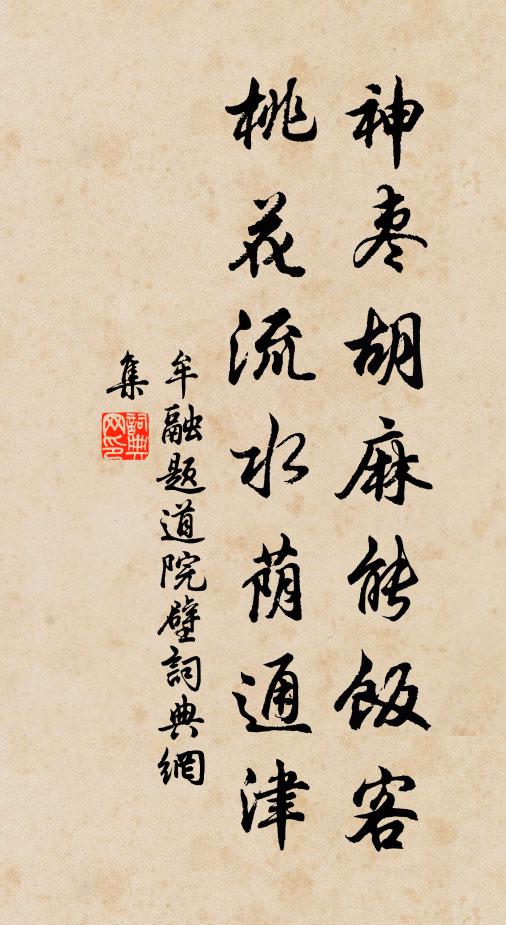 神枣胡麻能飯客
桃花流水荫通津
牟融題道院壁詞典網
集
詞典
网印